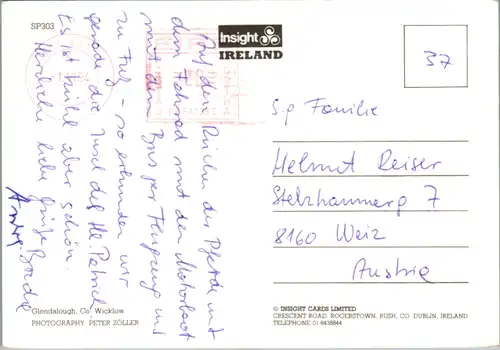 SP303
Insight
IRELAND
37
Auf dem Rücken der Pferde mit
dem Fahrrad mit dem Motorboot
mit dem Bus per Flugzeug und
zu Fuß – so erkunden wir
gerade die Insel des Hl. Patrick
Es ist kühl aber schön.
Herzliche liebe Grüße
S.g. Familie
Helmut Reiser
Stelzhammerg 7
8160 Weiz
Austria
Glendalough, Co. Wicklow
PHOTOGRAPHY PETER ZÖLLER
© INSIGHT CARDS LIMITED
CRESCENT ROAD, ROGERSTOWN, RUSH, CO. DUBLIN, IRELAND
TELEPHONE 01-8438844